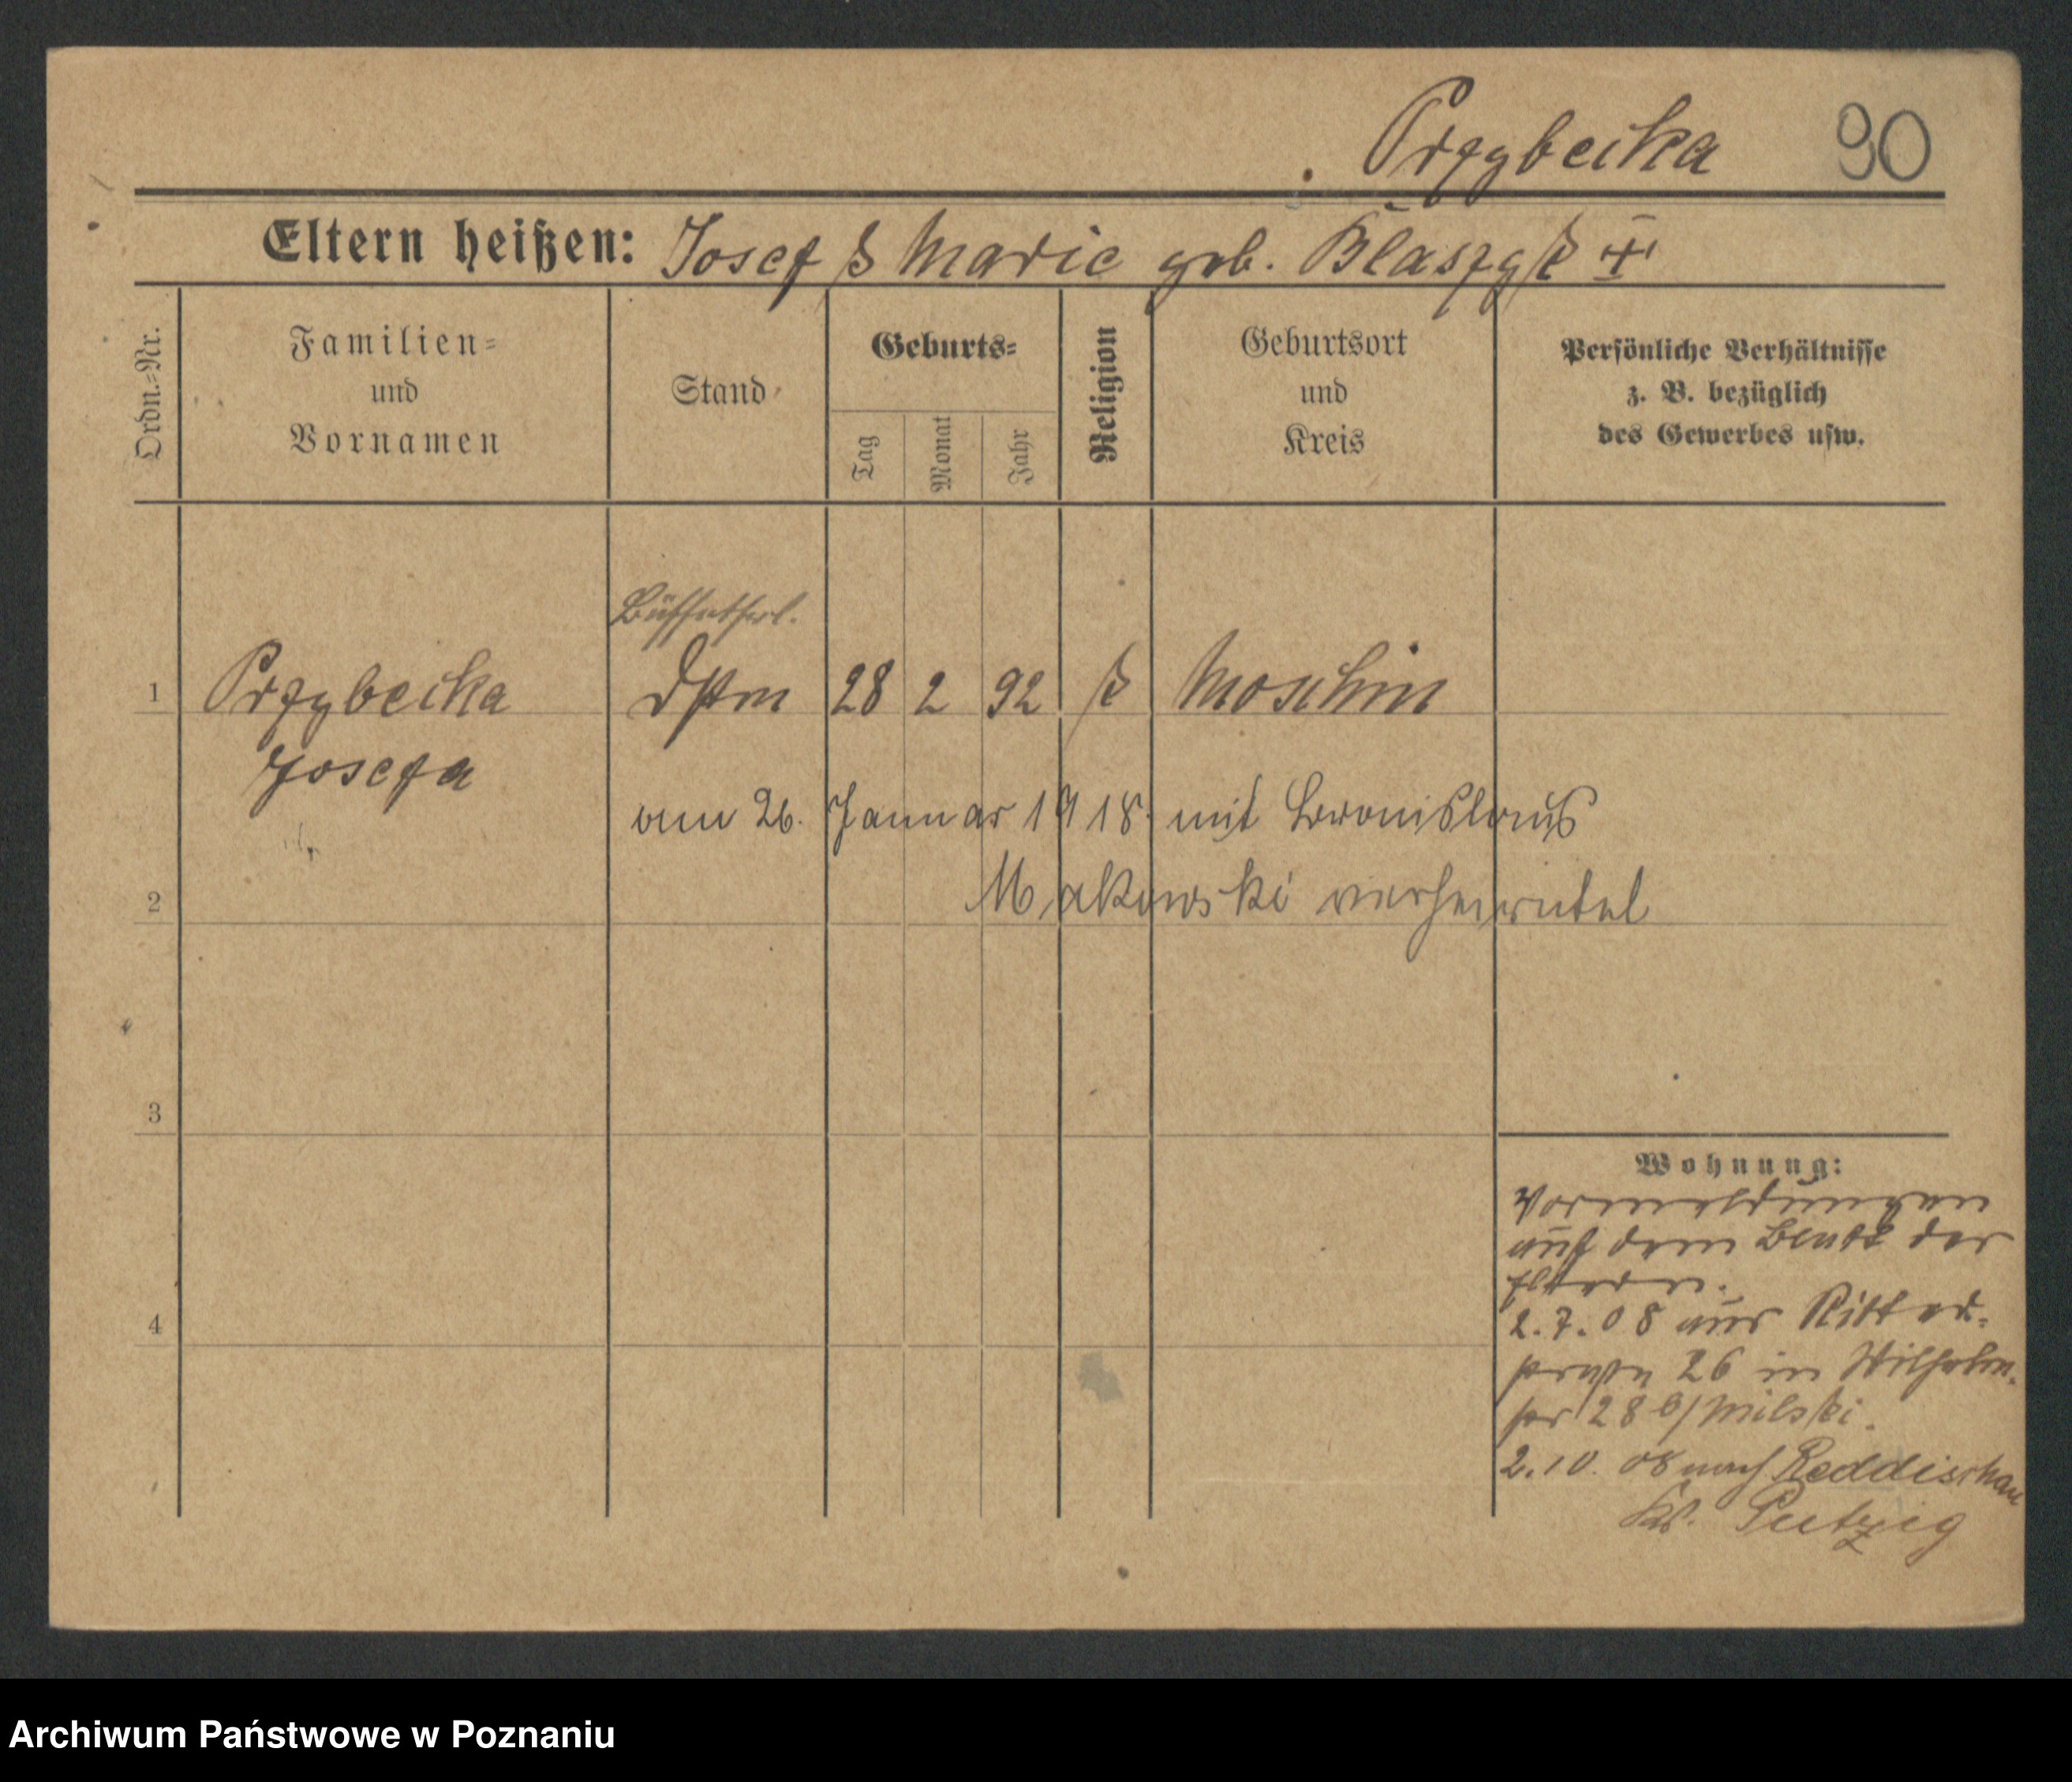 Przybecka 90
Eltern heißen: Josef & Marie geb. Blaszyk
Ordn.=Nr.
Familien=
und
Vornamen
Stand
Geburts=
Tag
Monat
Jahr
Religion
Geburtsort
und
Kreis
Persönliche Verhältnisse
z. B. bezüglich
des Gewerbes usw.
Büffetfrl.
1 Przybecka 28 2 92 k Moschin
Josefa
am 26. Januar 1918 mit Bronislaus
2 Makowski verheiratet
3
Wohnung:
Vormeldungen
auf dem Blatt der
Eltern.
4
2.7.08 aus Ritter-
straße 26 in Wilhelm-
str 28 b/ Milski.
2.10.08 nach Reddischau
Kr. Putzig
Archiwum Państwowe w Poznaniu